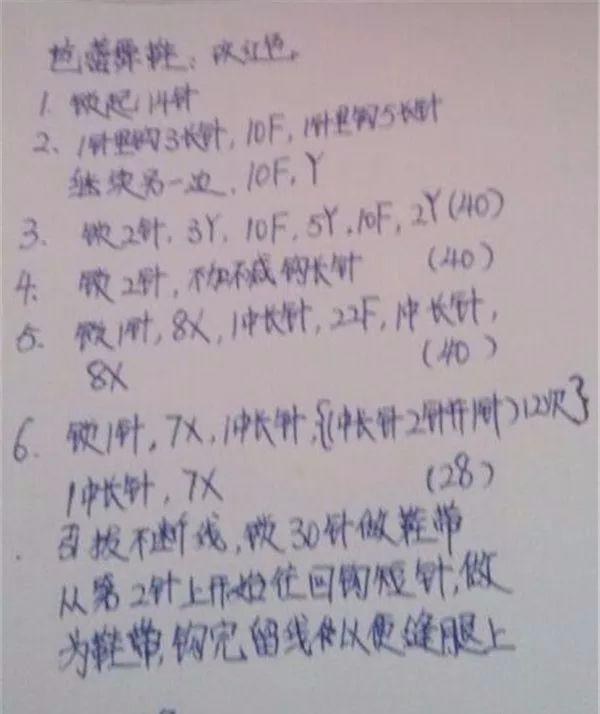 芭蕾舞鞋：玫红色。
1. 锁起14针
2、1针里钩3长针, 10F, 1针里钩5长针
继续另一边, 10F, Y
3. 锁2针, 3Y, 10F, 5Y, 10F, 2Y(40)
4. 锁2针, 不加不减钩长针 (40)
5. 锁1针, 8X, 1中长针, 22F, 1中长针,
8X (40)
6. 锁1针, 7X, 1中长针,{(中长针2针并1针)12次}
1中长针, 7X (28)
引拔不断线, 锁30针做鞋带
从第2针上开始往回钩短针, 做
为鞋带, 钩完留线体以便缝腿上